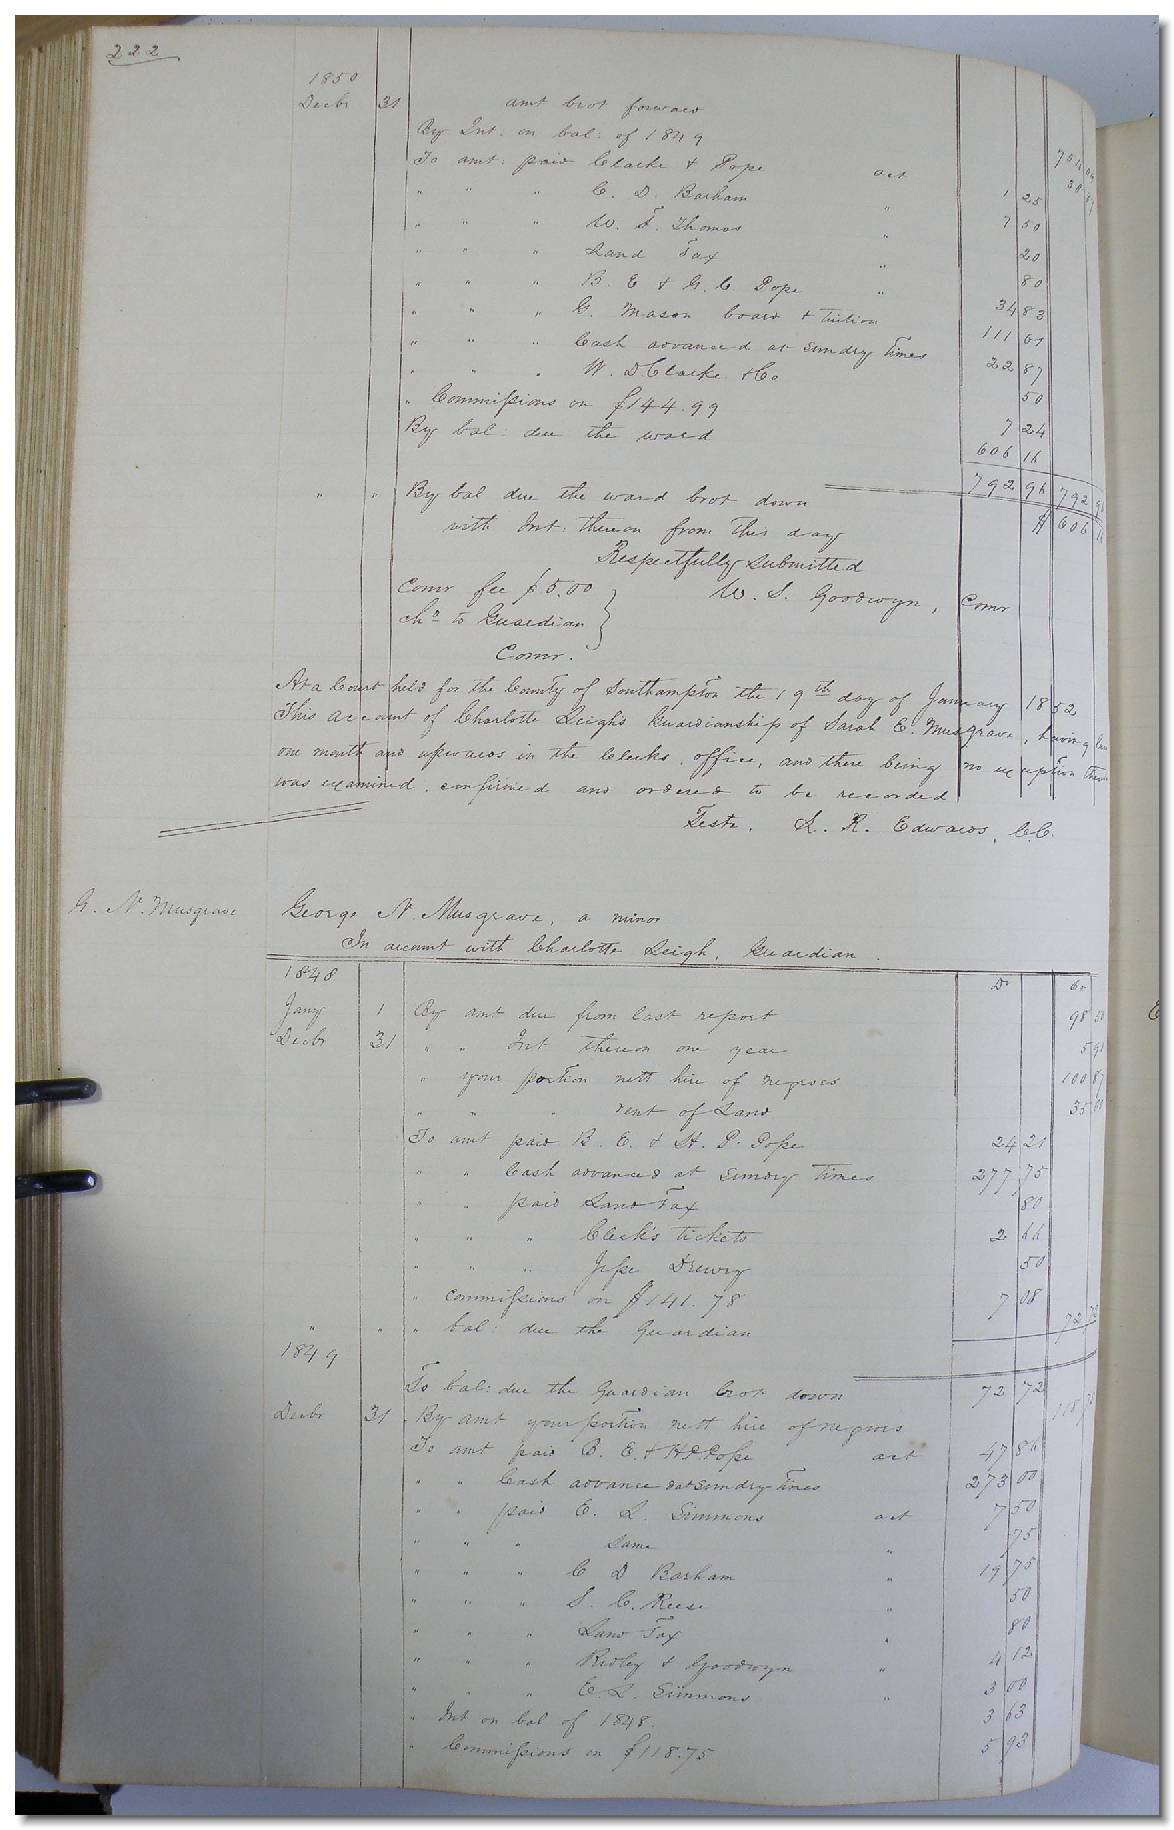 222
1850
Decbr 31 amt brot forward
By Int: on bal: of 1849
To amt: paid Clarke & Pope act 1 25
" " " C. D. Barham " 7 50
" " " W. F. Thomas " 20
" " " Land Tax " 80
" " " B. E & G. C. Pope " 34 83
" " " G. Mason board & tuition 111 01
" " " Cash advanced at sundry times 22 87
" " " W. D Clarke & Co 50
" Commissions on $144.99 7 24
By bal: due the ward 606 16
792 96 792 96
" " By bal due the ward brot down $ 606 16
with Int: thereon from this day
Respectfully Submitted
Comr fee $5.00 W. S. Goodwyn, Comr
chd to Guardian
Comr.
At a Court held for the County of Southampton the 19th day of January 1852
This account of Charlotte Leigh's Guardianship of Sarah E. Musgrave, having lain
one month and upwards in the Clerks office, and there being no exception thereto
was examined, confirmed and ordered to be recorded
Teste, L. R. Edwards, C.C.
G. N. Musgrave
George N. Musgrave, a minor
In account with Charlotte Leigh, Guardian.
1848 Dr Cr
Jany 1 By amt due from last report 98
Decbr 31 " " Int thereon one year 5 91
" your portion nett hire of negroes 100 87
" " " rent of Land 35
To amt paid B. E. & H. P. Pope 24 21
" " Cash advanced at Sundry times 277 75
" " paid Land Tax 80
" " " Clerk's tickets 2 66
" " " Jesse Drewry 50
" Commissions on $141.78 7 08
" " " bal: due the Guardian 72 72
1849
To bal: due the Guardian brot down 72 72
Decbr 31 " By amt your portion nett hire of negroes 118 75
To amt paid B. E. & H P Pope act 47 86
" " Cash advanced at Sundry times 273 00
" " paid E. L. Simmons act 7 50
" " " Same " 75
" " " C D Barham " 19 75
" " " S. C. Reese " 50
" " " Land Tax " 80
" " " Ridley & Goodwyn " 4 12
" " " E. L. Simmons " 3 00
" Int on bal of 1848. 3 63
" Commissions on $118.75 5 93